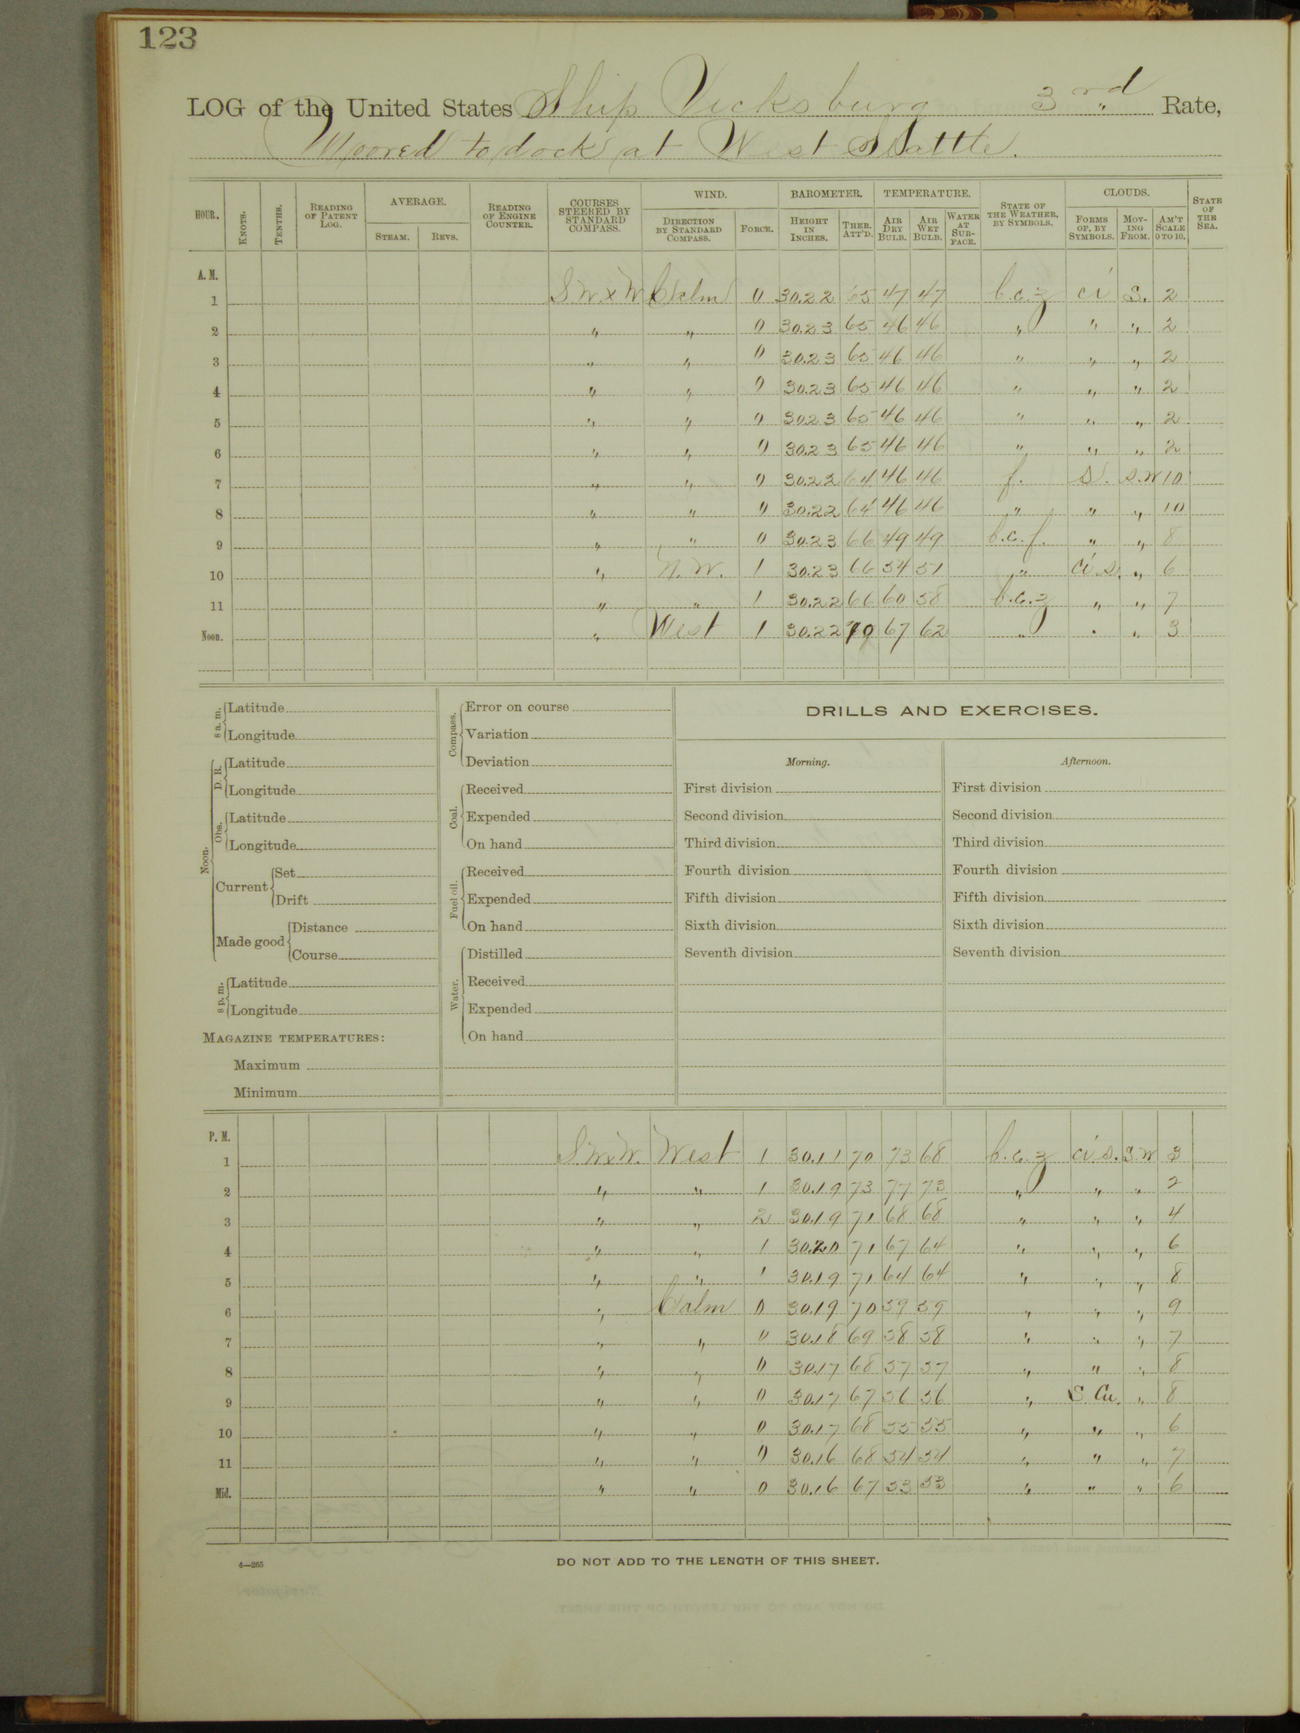 123
LOG of the United States Ship Vicksburg 3rd Rate,
Moored to dock at West Seattle.
HOUR. KNOTS. TENTHS. READING OF PATENT LOG. AVERAGE. STEAM. REVS. READING OF ENGINE COUNTER. COURSES STEERED BY STANDARD COMPASS. WIND. DIRECTION BY STANDARD COMPASS. FORCE. BAROMETER. HEIGHT IN INCHES. THER. ATT'D. TEMPERATURE. AIR DRY BULB. AIR WET BULB. WATER AT SURFACE. STATE OF THE WEATHER, BY SYMBOLS. CLOUDS. FORMS OF, BY SYMBOLS. MOVING FROM. AM'T SCALE 0 TO 10. STATE OF THE SEA.
A.M.
1 S.W.xW. Calm 0 30.22 65 47 47 b.c.z ci S. 2
2 " " 0 30.23 65 46 46 " " " 2
3 " " 0 30.23 65 46 46 " " " 2
4 " " 0 30.23 65 46 46 " " " 2
5 " " 0 30.23 65 46 46 " " " 2
6 " " 0 30.23 65 46 46 " " " 2
7 " " 0 30.22 64 46 46 f. S. S.W 10
8 " " 0 30.22 64 46 46 " " " 10
9 " " 0 30.23 66 49 49 b.c.f. " " 8
10 " N.W. 1 30.23 66 54 51 " ci.s. " 6
11 " " 1 30.22 66 60 58 b.c.z " " 7
Noon. " West 1 30.22 70 67 62 " " " 3
8 a.m. Latitude
Longitude
Noon. D. R. Latitude
Longitude
Obs. Latitude
Longitude
Current Set
Drift
Made good Distance
Course
8 p.m. Latitude
Longitude
MAGAZINE TEMPERATURES:
Maximum
Minimum
Compass. Error on course
Variation
Deviation
Coal. Received
Expended
On hand
Fuel oil. Received
Expended
On hand
Water. Distilled
Received
Expended
On hand
DRILLS AND EXERCISES.
Morning.
First division
Second division
Third division
Fourth division
Fifth division
Sixth division
Seventh division
Afternoon.
First division
Second division
Third division
Fourth division
Fifth division
Sixth division
Seventh division
P.M.
1 S.W.xW. West 1 30.11 70 73 68 b.c.z ci.s. S.W 3
2 " " 1 30.19 73 77 73 " " " 2
3 " " 2 30.19 71 68 68 " " " 4
4 " " 1 30.20 71 67 64 " " " 6
5 " " 1 30.19 71 64 64 " " " 8
6 " Calm 0 30.19 70 59 59 " " " 9
7 " " 0 30.18 69 58 58 " " " 7
8 " " 0 30.17 68 57 57 " " " 8
9 " " 0 30.17 67 56 56 " S.Cu. " 8
10 " " 0 30.17 68 55 55 " " " 6
11 " " 0 30.16 68 54 54 " " " 7
Mid. " " 0 30.16 67 53 53 " " " 6
4—265
DO NOT ADD TO THE LENGTH OF THIS SHEET.